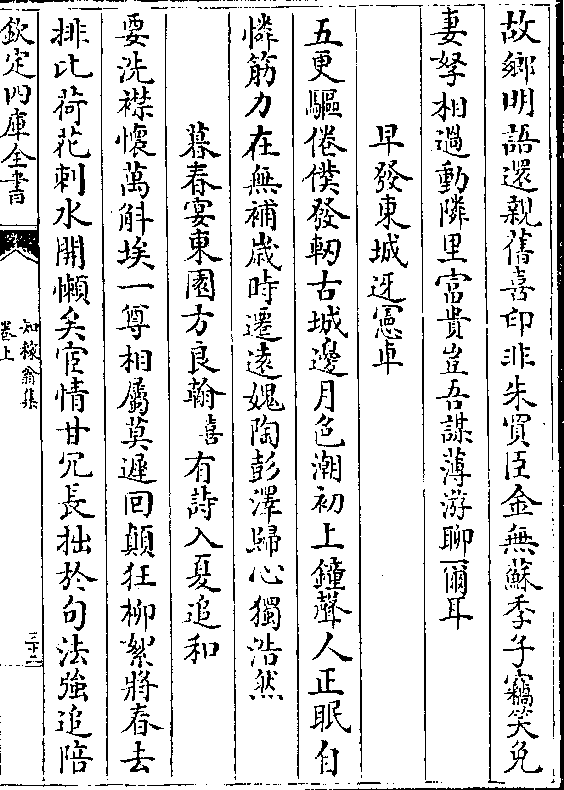 故鄉明語還親舊喜印非朱買臣金無蘇季子竊笑免
妻孥相過動隣里富貴豈吾謀薄游聊爾耳
早發東城迓憲車
五更驅倦僕發軔古城邊月色潮初上鐘聲人正眠自
憐筋力在無補歲時遷逺媿陶彭澤歸心獨浩然
暮春宴東園方良翰喜有詩入夏追和
要洗襟懷萬斛埃一尊相屬莫遲回顛狂柳絮將春去
排比荷花刺水開懶矣宦情甘冗長拙於句法強追陪
欽定四庫全書
如稼翁集
卷上
三十二